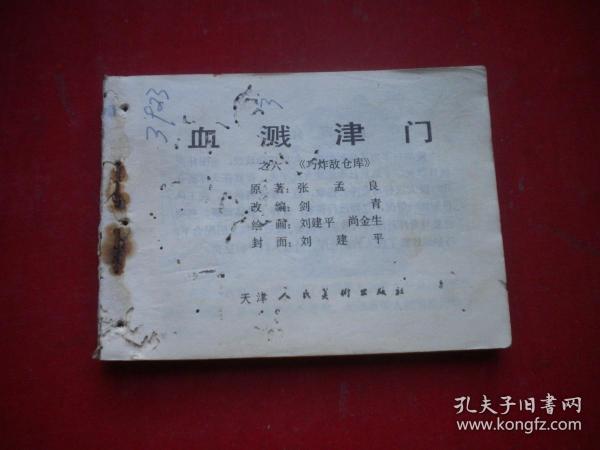 3923
33
血溅津门
之六 《巧炸敌仓库》
原著：张孟良
改编：剑青
绘画：刘建平 尚金生
封面：刘建平
天津人民美術出版社
孔夫子旧书网
www.kongfz.com